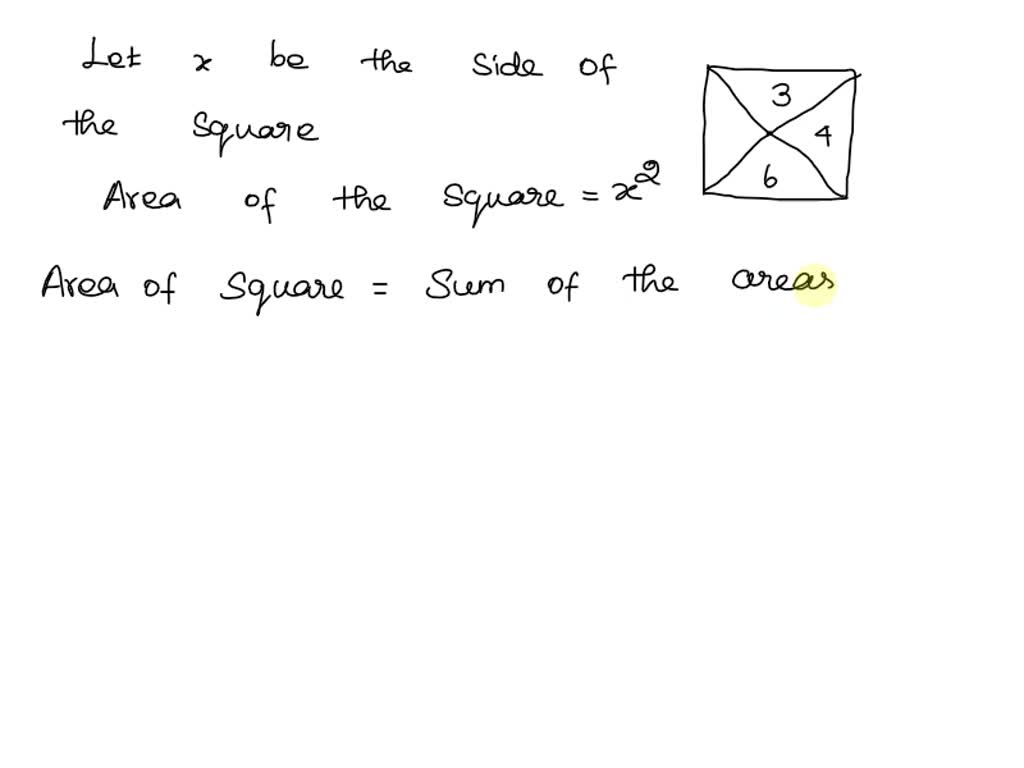 Let x be the side of
the square
Area of the square = x²
Area of square = Sum of the areas
3
4
6